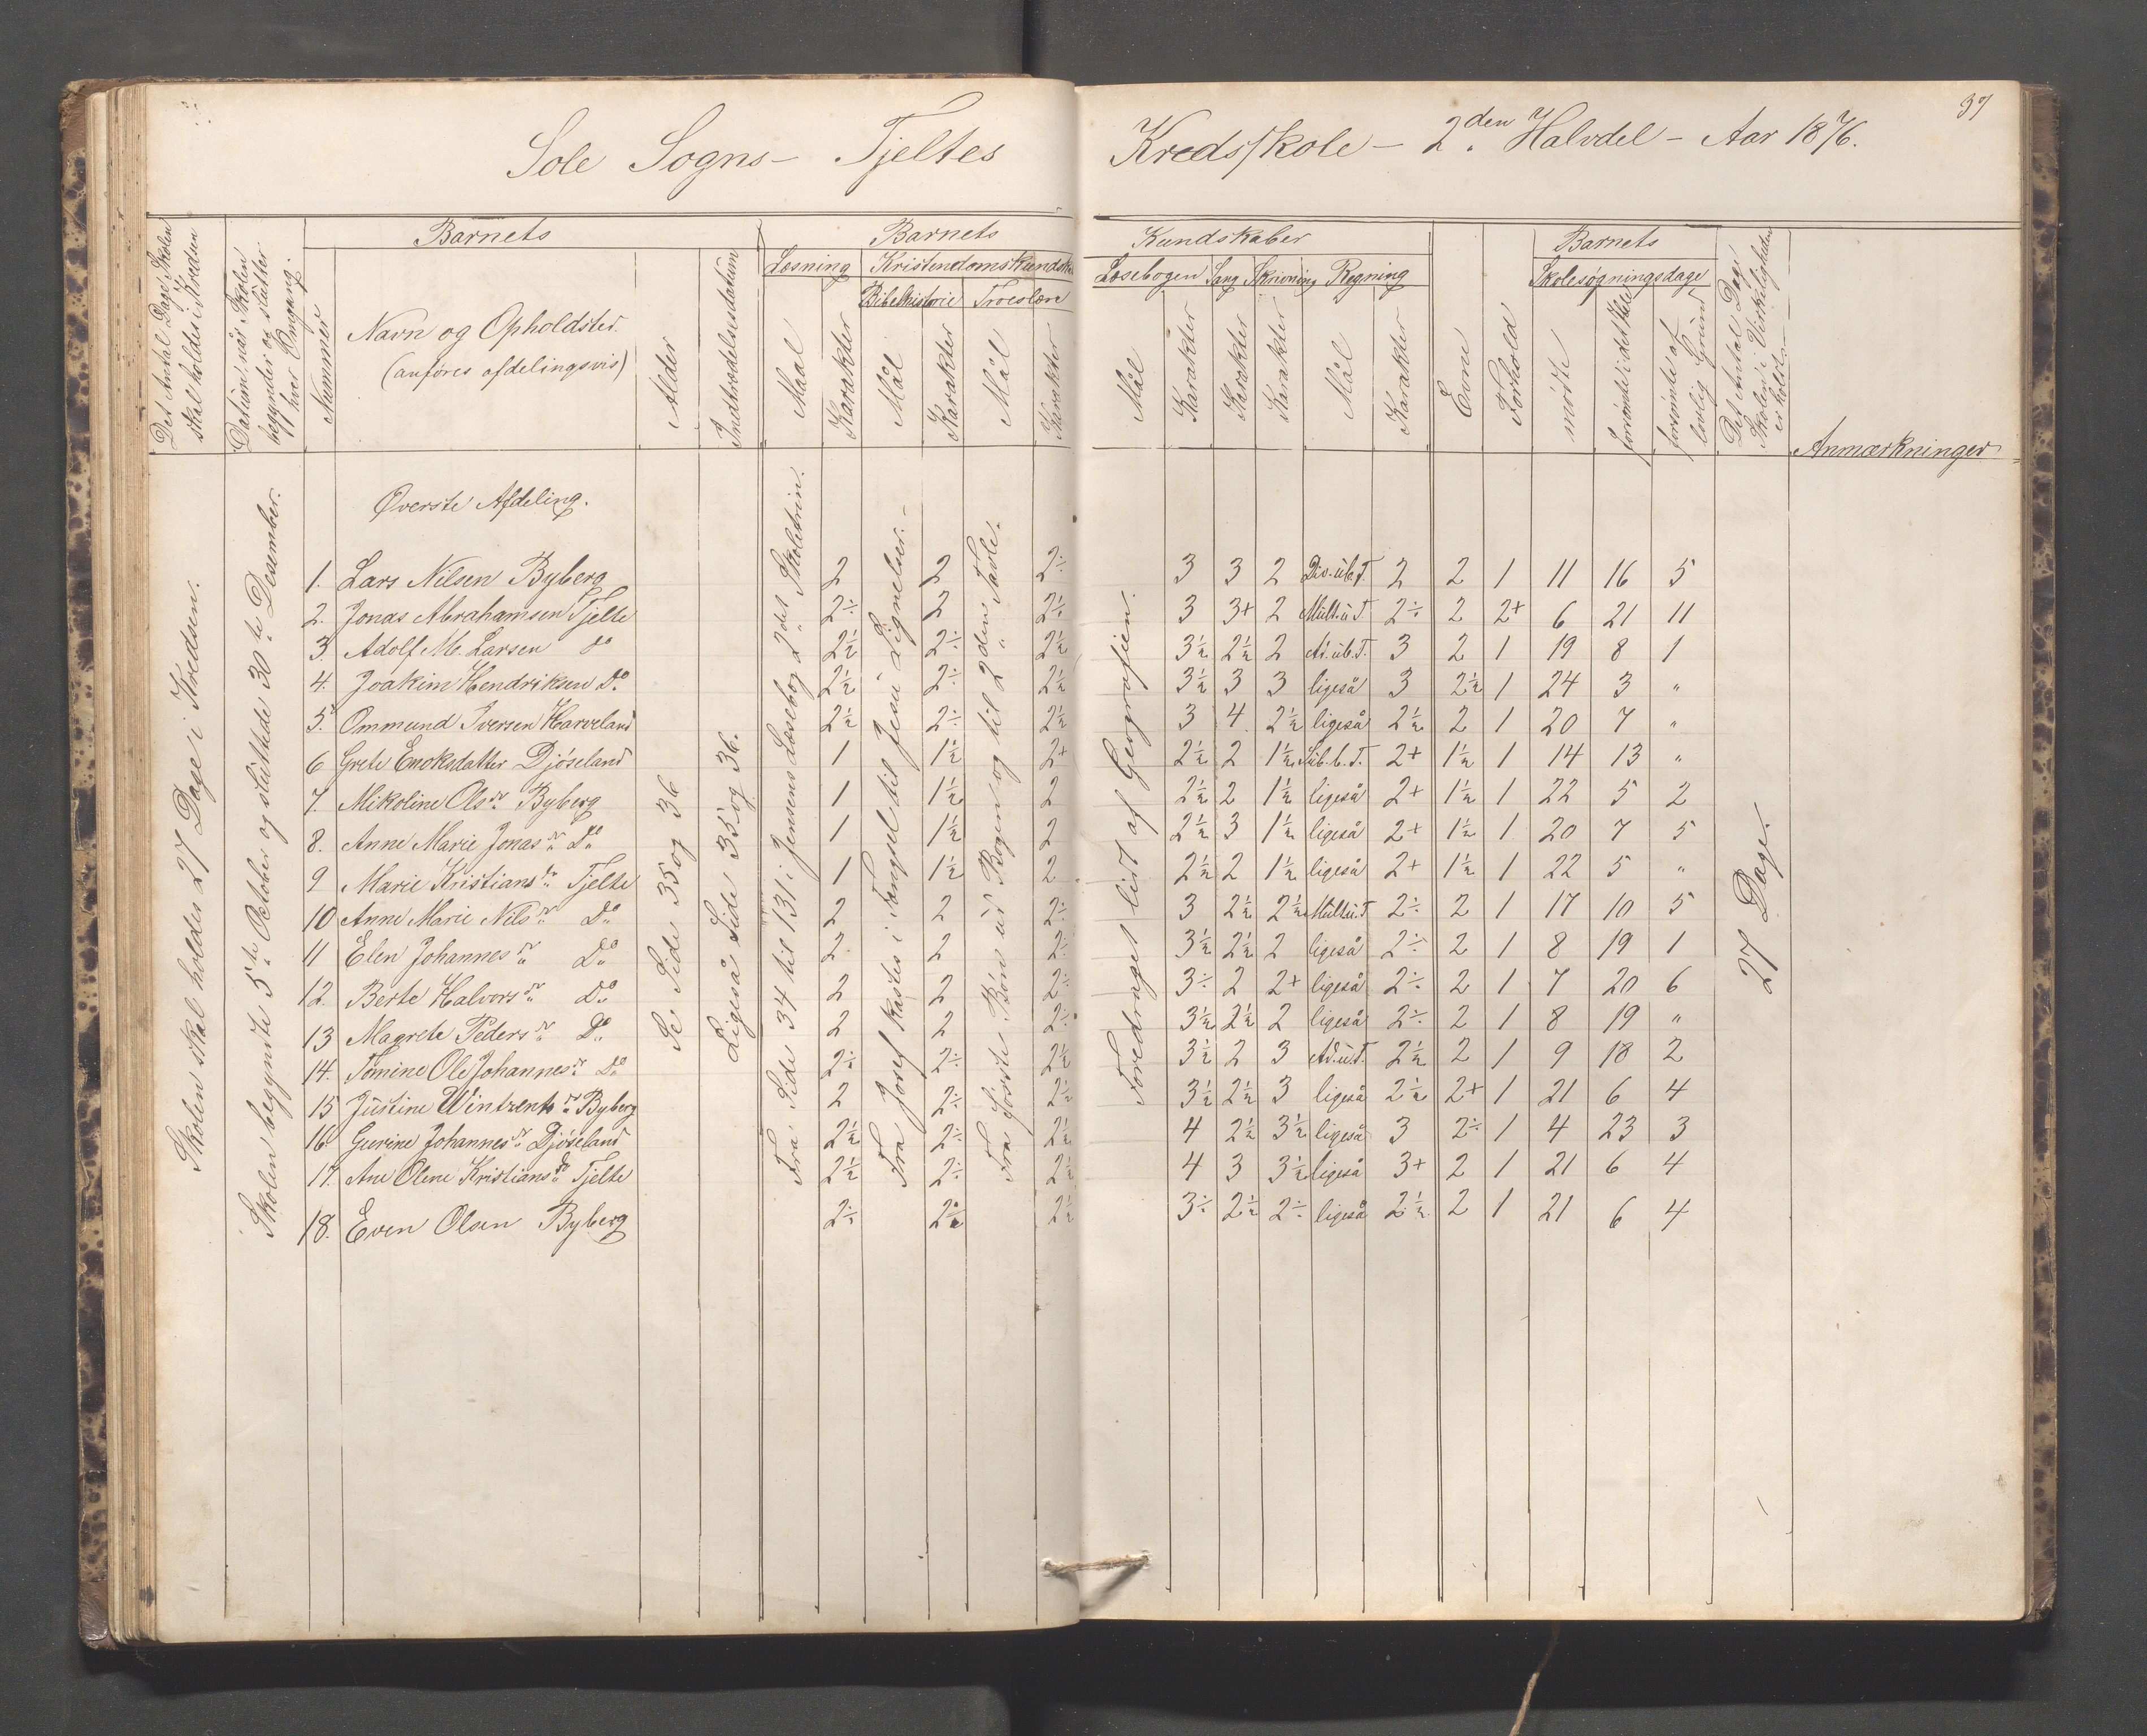 37
Sole Sogns - Tjeltes Kredsskole - 2den Halvdel - Aar 1876.
Det Antal Dage Skolen skal holdes i Kredsen
Datum, når Skolen begynder og slutter hver Omgang.
Nummer
Barnets
Navn og Opholdsted.
(anføres afdelingsvis)
Alder
Indtrædelsesdatum
Barnets
Læsning
Maal
Karakter
Kristendomskundsk
Bibelhistorie
Mål
Karakter
Troeslære
Mål
Karakter
Kundskaber
Læsebogen
Mål
Karakter
Sang
Karakter
Skrivning
Karakter
Regning
Mål
Karakter
Evne
Forhold
Barnets
Skolesøgningsdage
mødte
forsømte i det Hele
forsømte af lovlig Grund
Det Antal Dage Skolen i Virkeligheden er holdt
Anmærkninger
Skolen skal holdes 27 Dage i Kredsen.
Skolen begyndte 5te October og sluttede 30te Desember.
Se Side 35 og 36
Ligeså Side 35 og 36.
Fra Side 34 til 131 i Jensens Læsebog 2det Skoletrin.
Fra Josef kastes i Fængsel til Jesu Lignelser. -
Fra første Bøn ud Bogen og til 2den Tavle.
Foredraget lidt af Geografien.
27 Dage.
Øverste Afdeling.
1. Lars Nilsen Byberg 2 2 2÷ 3 3 2 Div. ub. T. 2 2 1 11 16 5
2. Jonas Abrahamsen Tjelte 2÷ 2 2½ 3 3+ 2 Mult. u T. 2÷ 2 2+ 6 21 11
3. Adolf M. Larsen do 2½ 2÷ 2½ 3½ 2½ 2 Ad. ub. T. 3 2 1 19 8 1
4. Joakim Hendriksen Do. 2½ 2÷ 2½ 3½ 3 3 ligeså 3 2½ 1 24 3 "
5. Ommund Iversen Harveland 2½ 2÷ 2½ 3 4 2½ ligeså 2½ 2 1 20 7 "
6 Grete Enoksdatter Djøseland 1 1½ 2+ 2½ 2 1½ Sub. b. T. 2+ 1½ 1 14 13 "
7. Mikoline Olsdr Byberg 1 1½ 2 2½ 2 1½ ligeså 2+ 1½ 1 22 5 2
8. Anne Marie Jonasdr Do 1 1½ 2 2½ 3 1½ ligeså 2+ 1½ 1 20 7 5
9 Marie Kristiansdr Tjelte 1 1½ 2 2½ 2 1½ ligeså 2+ 1½ 1 22 5 "
10 Anne Marie Nilsdr Do 2 2 2÷ 3 2½ 2½ Mult u. T 2÷ 2 1 17 10 5
11 Elen Johannesdr Do 2 2 2÷ 3½ 2½ 2 ligeså 2÷ 2 1 8 19 1
12. Berte Halvorsdr Do 2 2 2÷ 3÷ 2 2+ ligeså 2÷ 2 1 7 20 6
13 Magrete Pedersdr Do 2 2 2÷ 3½ 2½ 2 ligeså 2÷ 2 1 8 19 "
14. Tomine Ole Johannesdr Do 2÷ 2÷ 2½ 3½ 2 3 Ad. u. T. 2½ 2 1 9 18 2
15 Justine Wintrentsdr Byberg 2 2÷ 2½ 3½ 2½ 3 ligeså 2½ 2+ 1 21 6 4
16 Gurine Johannesdr Djøseland 2½ 2÷ 2½ 4 2½ 3½ ligeså 3 2÷ 1 4 23 3
17. Ane Olene Kristiansdr Tjelte 2½ 2÷ 2½ 4 3 3½ ligeså 3+ 2 1 21 6 4
18. Even Olsen Byberg 2÷ 2½ 2½ 3÷ 2½ 2÷ ligeså 2½ 2 1 21 6 4